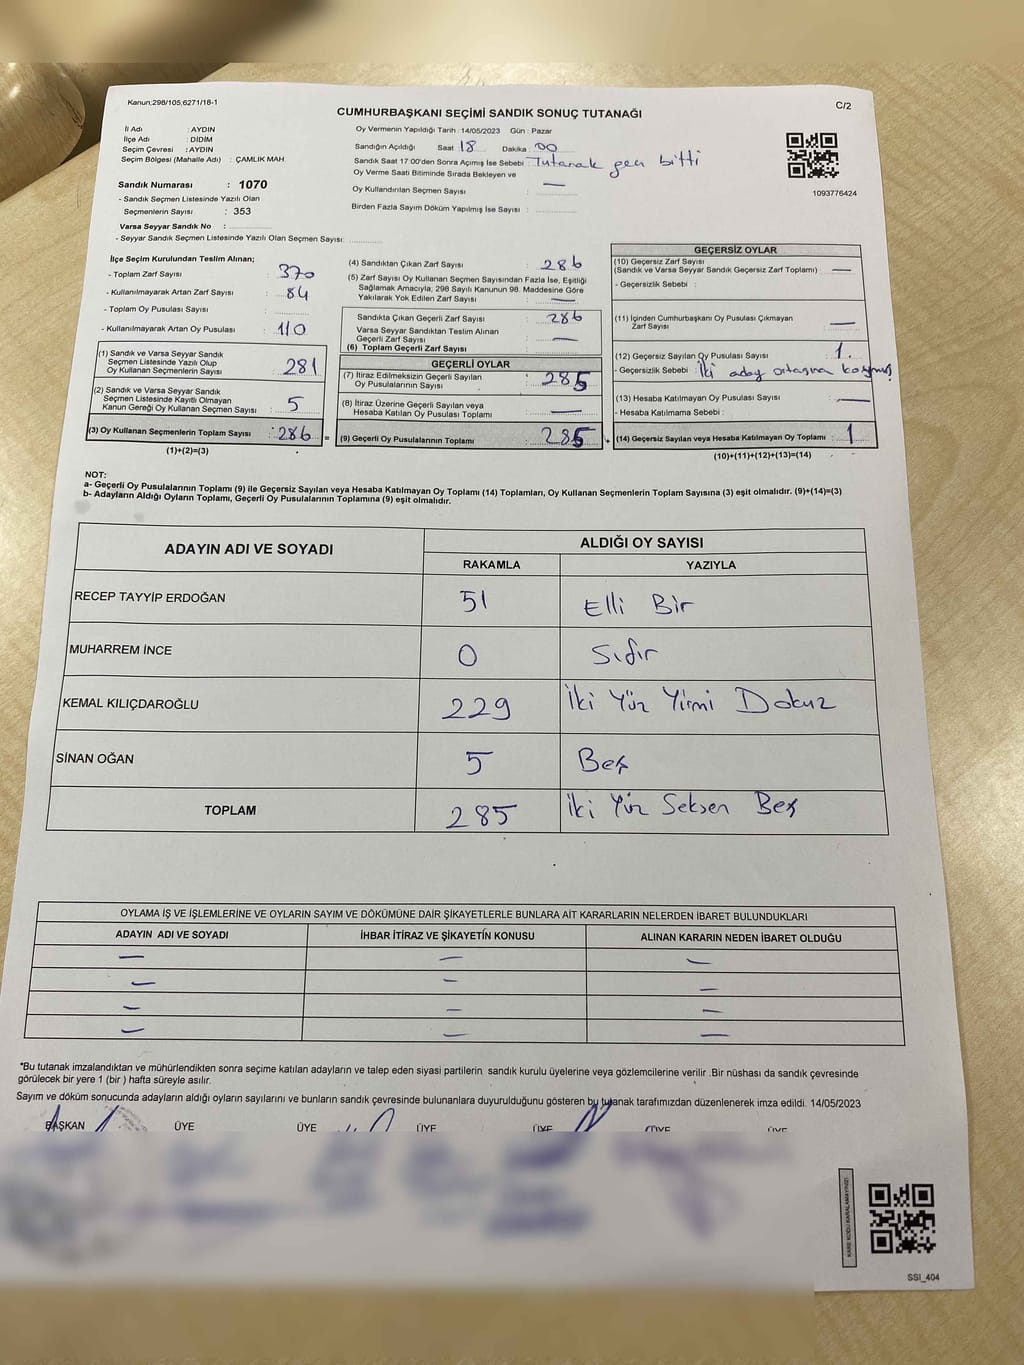 Kanun;298/105,6271/18-1
C/2
CUMHURBAŞKANI SEÇİMİ SANDIK SONUÇ TUTANAĞI
İl Adı : AYDIN
İlçe Adı : DİDİM
Seçim Çevresi : AYDIN
Seçim Bölgesi (Mahalle Adı) : ÇAMLIK MAH.
Sandık Numarası : 1070
- Sandık Seçmen Listesinde Yazılı Olan
Seçmenlerin Sayısı : 353
Varsa Seyyar Sandık No :
- Seyyar Sandık Seçmen Listesinde Yazılı Olan Seçmen Sayısı:
Oy Vermenin Yapıldığı Tarih : 14/05/2023 Gün : Pazar
Sandığın Açıldığı Saat 18 Dakika : 00
Sandık Saat 17:00'den Sonra Açımış İse Sebebi : Tutanak geç bitti
Oy Verme Saati Bitiminde Sırada Bekleyen ve
Oy Kullandırılan Seçmen Sayısı —
Birden Fazla Sayım Döküm Yapılmış İse Sayısı :
1093776424
İlçe Seçim Kurulundan Teslim Alınan;
- Toplam Zarf Sayısı : 370
- Kullanılmayarak Artan Zarf Sayısı : 84
- Toplam Oy Pusulası Sayısı :
- Kullanılmayarak Artan Oy Pusulası : 110
(1) Sandık ve Varsa Seyyar Sandık
Seçmen Listesinde Yazılı Olup
Oy Kullanan Seçmenlerin Sayısı : 281
(2) Sandık ve Varsa Seyyar Sandık
Seçmen Listesinde Kayıtlı Olmayan
Kanun Gereği Oy Kullanan Seçmen Sayısı : 5
(3) Oy Kullanan Seçmenlerin Toplam Sayısı : 286 =
(1)+(2)=(3)
(4) Sandıktan Çıkan Zarf Sayısı : 286
(5) Zarf Sayısı Oy Kullanan Seçmen Sayısından Fazla İse, Eşitliği
Sağlamak Amacıyla; 298 Sayılı Kanunun 98. Maddesine Göre
Yakılarak Yok Edilen Zarf Sayısı : —
Sandıkta Çıkan Geçerli Zarf Sayısı : 286
Varsa Seyyar Sandıktan Teslim Alınan
Geçerli Zarf Sayısı : —
(6) Toplam Geçerli Zarf Sayısı :
GEÇERLİ OYLAR
(7) İtiraz Edilmeksizin Geçerli Sayılan
Oy Pusulalarının Sayısı : 285
(8) İtiraz Üzerine Geçerli Sayılan veya
Hesaba Katılan Oy Pusulası Toplamı : —
(9) Geçerli Oy Pusulalarının Toplamı : 285 +
GEÇERSİZ OYLAR
(10) Geçersiz Zarf Sayısı
(Sandık ve Varsa Seyyar Sandık Geçersiz Zarf Toplamı) : —
- Geçersizlik Sebebi :
(11) İçinden Cumhurbaşkanı Oy Pusulası Çıkmayan
Zarf Sayısı : —
(12) Geçersiz Sayılan Oy Pusulası Sayısı : 1.
- Geçersizlik Sebebi : İki aday ortasına
(13) Hesaba Katılmayan Oy Pusulası Sayısı : —
- Hesaba Katılmama Sebebi :
(14) Geçersiz Sayılan veya Hesaba Katılmayan Oy Toplamı : 1
(10)+(11)+(12)+(13)=(14)
NOT:
a- Geçerli Oy Pusulalarının Toplamı (9) ile Geçersiz Sayılan veya Hesaba Katılmayan Oy Toplamı (14) Toplamları, Oy Kullanan Seçmenlerin Toplam Sayısına (3) eşit olmalıdır. (9)+(14)=(3)
b- Adayların Aldığı Oyların Toplamı, Geçerli Oy Pusulalarının Toplamına (9) eşit olmalıdır.
ADAYIN ADI VE SOYADI ALDIĞI OY SAYISI
RAKAMLA YAZIYLA
RECEP TAYYİP ERDOĞAN 51 Elli Bir
MUHARREM İNCE 0 Sıfır
KEMAL KILIÇDAROĞLU 229 İki Yüz Yirmi Dokuz
SİNAN OĞAN 5 Beş
TOPLAM 285 İki Yüz Seksen Beş
OYLAMA İŞ VE İŞLEMLERİNE VE OYLARIN SAYIM VE DÖKÜMÜNE DAİR ŞİKAYETLERLE BUNLARA AİT KARARLARIN NELERDEN İBARET BULUNDUKLARI
ADAYIN ADI VE SOYADI İHBAR İTİRAZ VE ŞİKAYETİN KONUSU ALINAN KARARIN NEDEN İBARET OLDUĞU
— — —
— — —
— — —
— — —
*Bu tutanak imzalandıktan ve mühürlendikten sonra seçime katılan adayların ve talep eden siyasi partilerin sandık kurulu üyelerine veya gözlemcilerine verilir .Bir nüshası da sandık çevresinde
görülecek bir yere 1 (bir ) hafta süreyle asılır.
Sayım ve döküm sonucunda adayların aldığı oyların sayılarını ve bunların sandık çevresinde bulunanlara duyurulduğunu gösteren bu tutanak tarafımızdan düzenlenerek imza edildi. 14/05/2023
BAŞKAN ÜYE ÜYE ÜYE ÜYE ÜYE ÜYE
KARE KODU KARALAMAYINIZ!
SSI_404